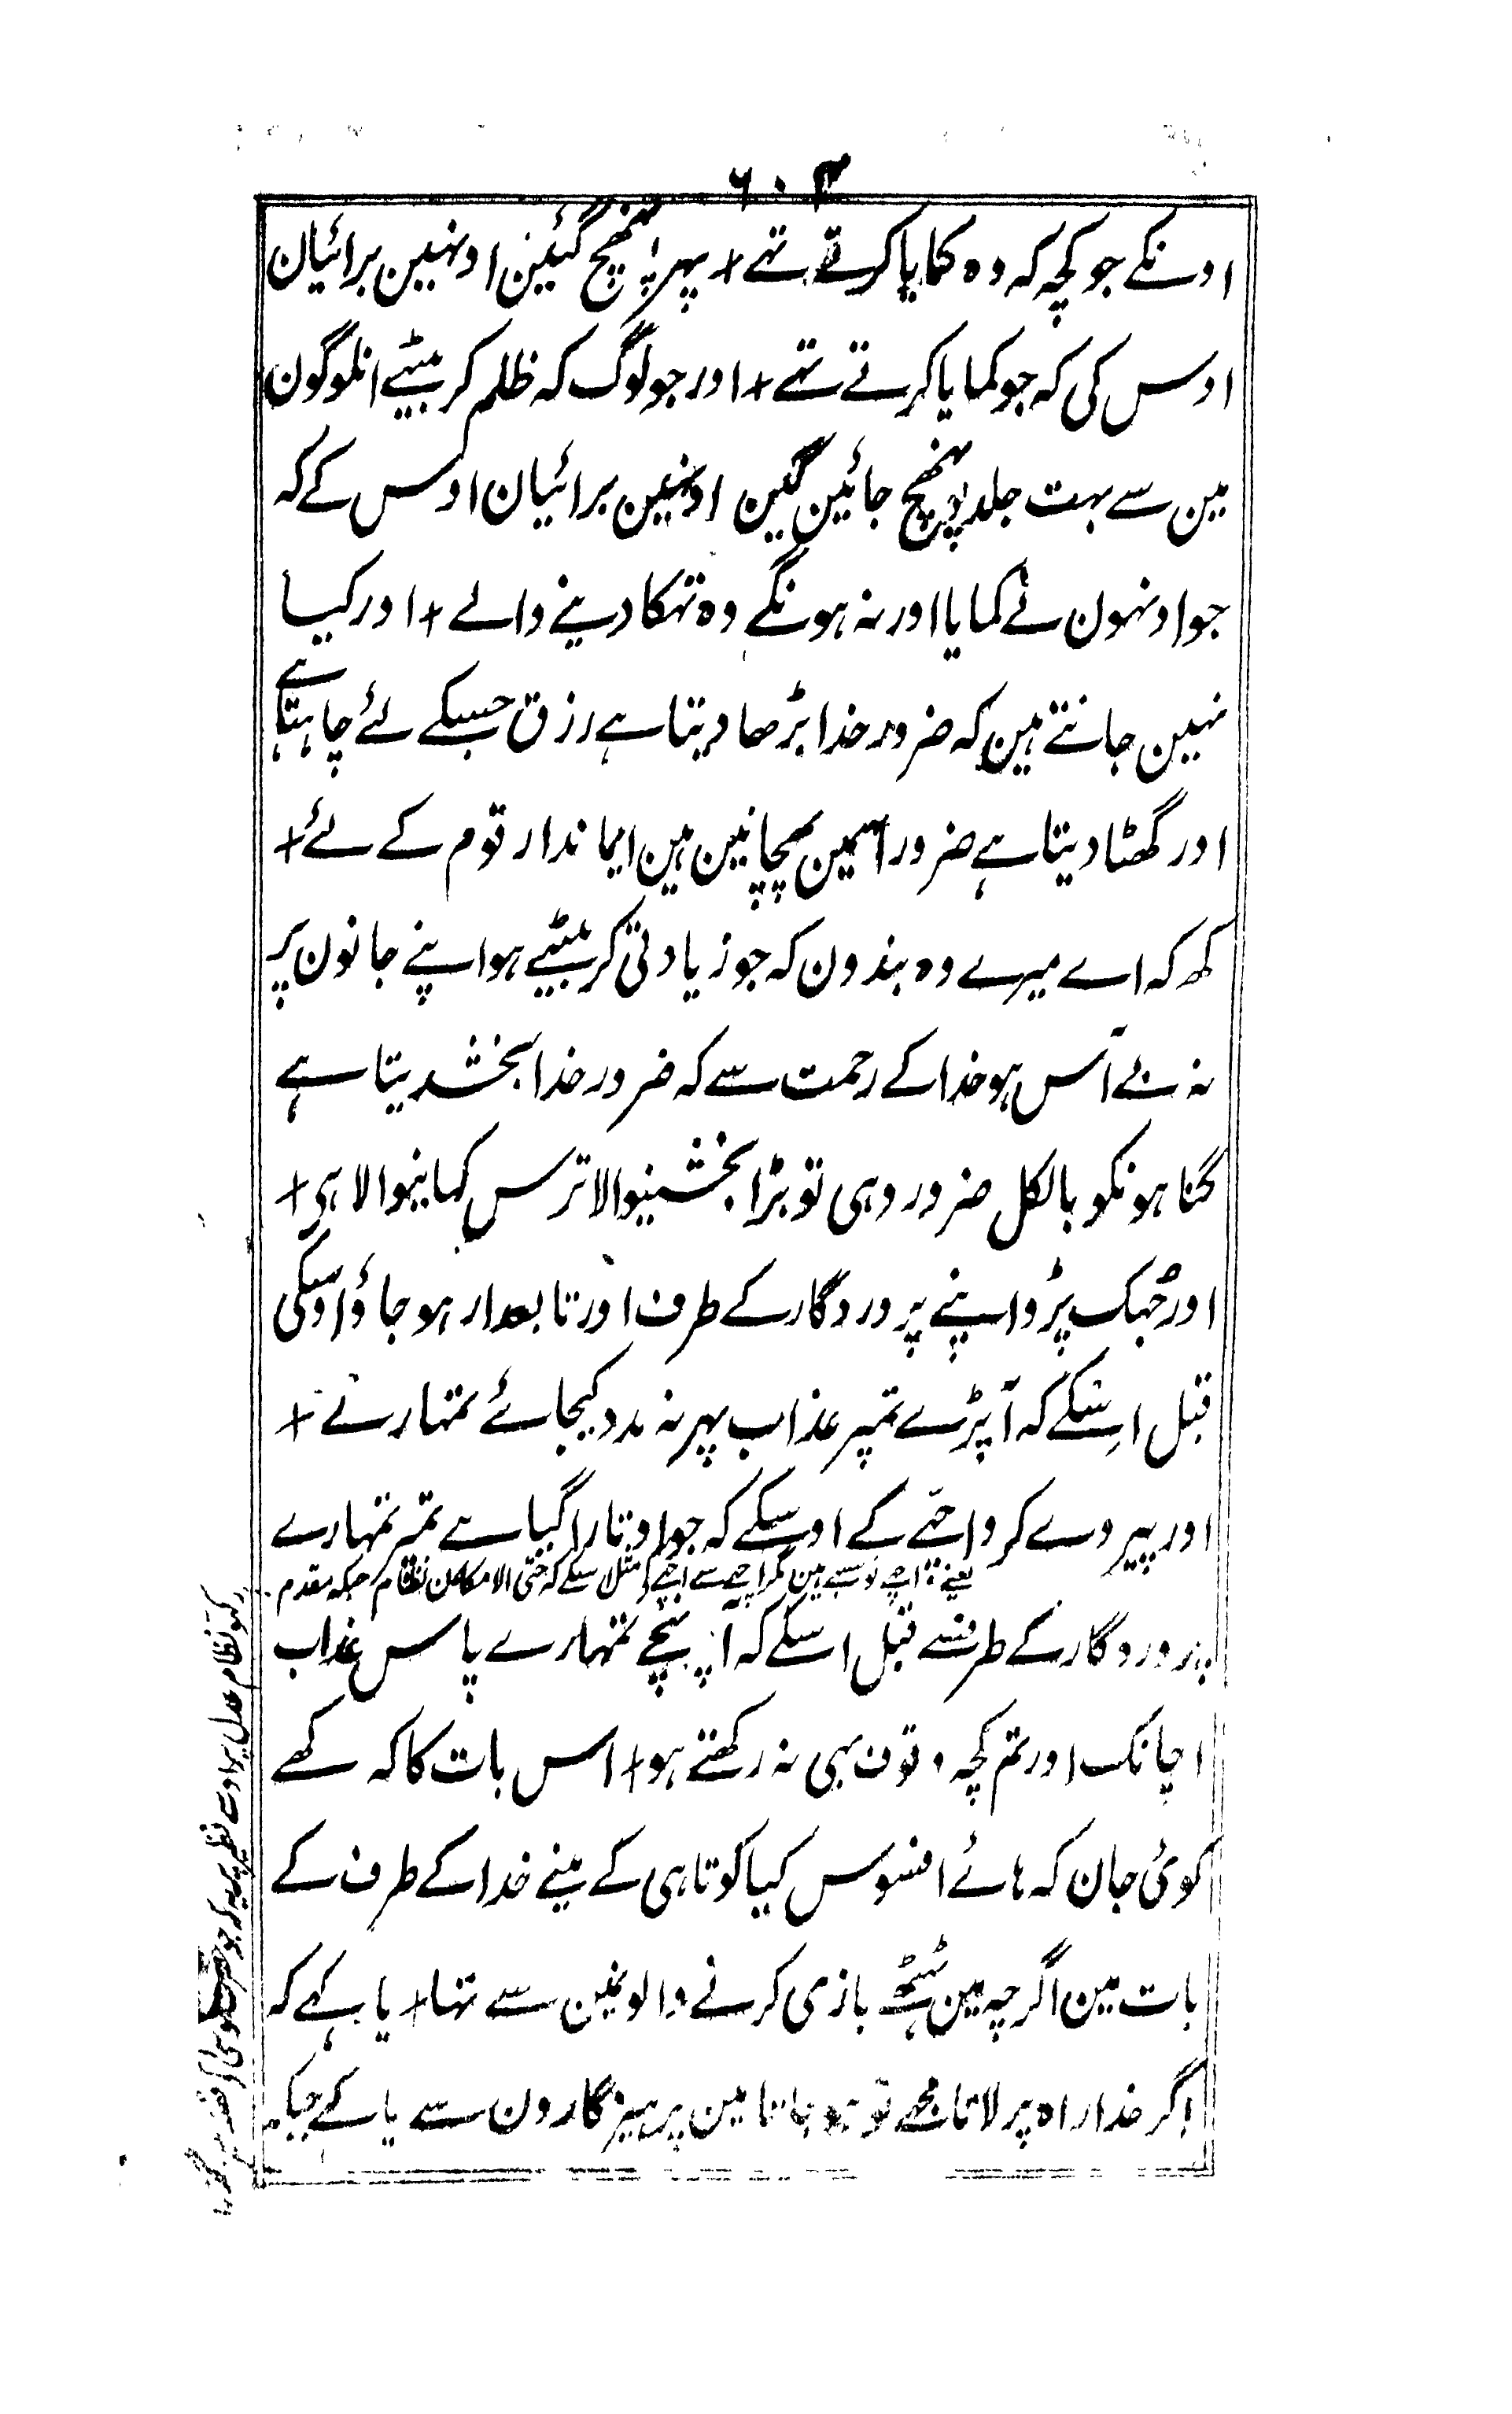 ۶۰۳
اونکے جو کچہ کہ وہ کمایا کرتے تہے + پہر پہنچ گئین اونہین برائیان
اوس کی کہ جو کمایا کرتے تہے + اور جو لوگ کہ ظلم کر بیٹہے انلوگون
مین سے بہت جلد پہونچ جائین گین اونہین برائیان اوس کے کہ
جو اونہون نے کمایا اور نہ ہونگے وہ تہکا دینے والے + اور کیا
نہین جانتے ہین کہ ضرور خدا بڑھا دیتا ہے رزق جسکے لئے چاہتا ہے
اور گھٹا دیتا ہے ضرور اسمین پہچانین ہین ایماندار قوم کے لئے +
کھ کہ اے میرے وہ بندون کہ جو زیادتی کر بیٹہے ہو اپنے جانون پر
نہ بے آس ہو خدا کے رحمت سے کہ ضرور خدا بخشدیتا ہے
گناہونکو بالکل ضرور وہی تو بڑا بخشنیوالا ترس کہانیوالا ہی +
اور جُہک پڑو اپنے پروردگار کے طرف اور تابعدار ہو جاؤ اوسکی
قبل اسِکے کہ آپڑے تمپر عذاب پہر نہ مدد کیجائے تمہارے +
اور پیروے کرو اچّے کے اوسکے کہ جو اوتارا گیا ہے تمپر تمہارے
یعنے اچہے توسب ہین مگر اچہے سے اچہے کو مثلا اسکے کہ حتی الامکان نظام جبکہ مقدم
پروردگار کے طرفسے قبل اسکے کہ آپہنچے تمہارے پاس عذاب
اچانک اور تم کچہ وقوف بہی نہ رکھتے ہو + اس بات کا کہ کہے
کوئی جان کہ ہائے افسوس کیا کوتاہی کے مینے خدا کے طرف کے
بات مین اگرچہ مین ٹہٹہے بازی کرنے والونمین سے تہا + یا کہے کہ
اگر خدا راہ پر لاتا مجہے تو ہو جاتا مین پرہیزگارون سے یا کہے جبکہ